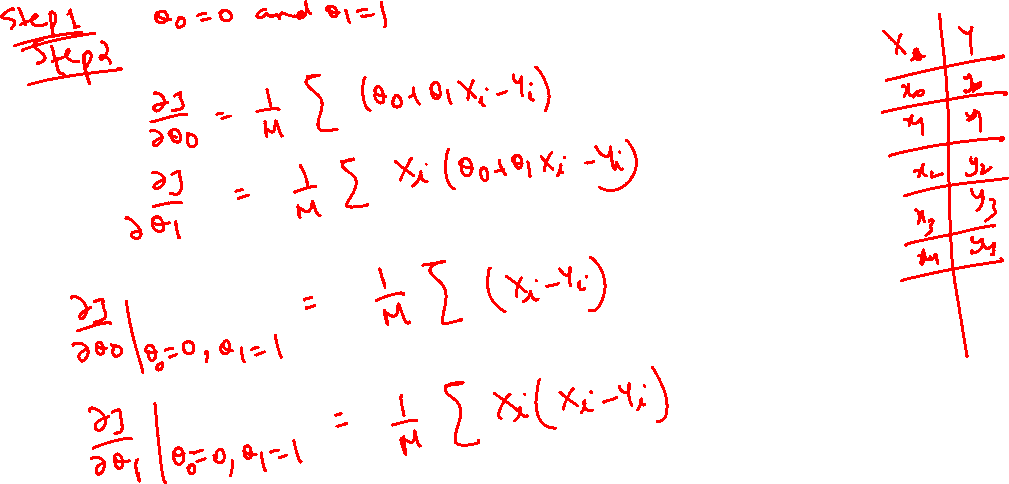 Step 1 θ₀ = 0 and θ₁ = 1
Step 2
∂J/∂θ₀ = 1/M Σ (θ₀ + θ₁ Xᵢ - Yᵢ)
∂J/∂θ₁ = 1/M Σ Xᵢ (θ₀ + θ₁ Xᵢ - Yᵢ)
∂J/∂θ₀ | θ₀ = 0, θ₁ = 1 = 1/M Σ (Xᵢ - Yᵢ)
∂J/∂θ₁ | θ₀ = 0, θ₁ = 1 = 1/M Σ Xᵢ (Xᵢ - Yᵢ)
X Y
x₀ y₀
x₁ y₁
x₂ y₂
x₃ y₃
x₄ y₄